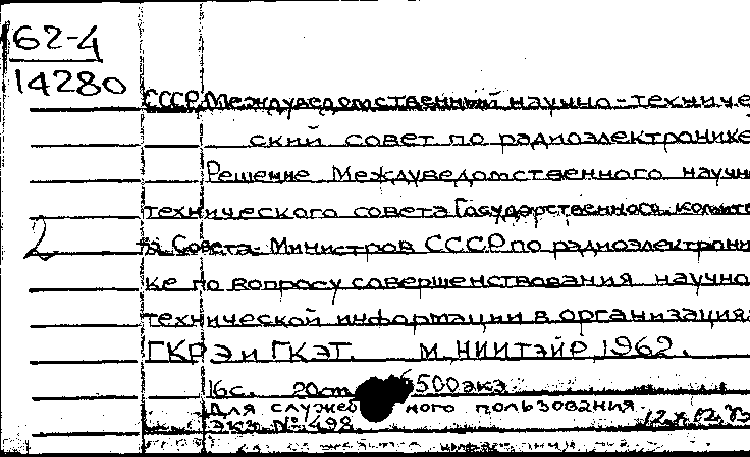 62-4
14280
СССР. Междуведомственный научно-техниче
ский совет по радиоэлектронике
Решение Междуведомственного научн
технического совета Государственного комите
2
та Совета Министров СССР по радиоэлектрони
ке по вопросу совершенствования научно
технической информации в организациях
ГКРЭ и ГКЭТ. М, НИИТЭИР, 1962.
16с. 20см 500экз
Для служеб ного пользования
Экз №498